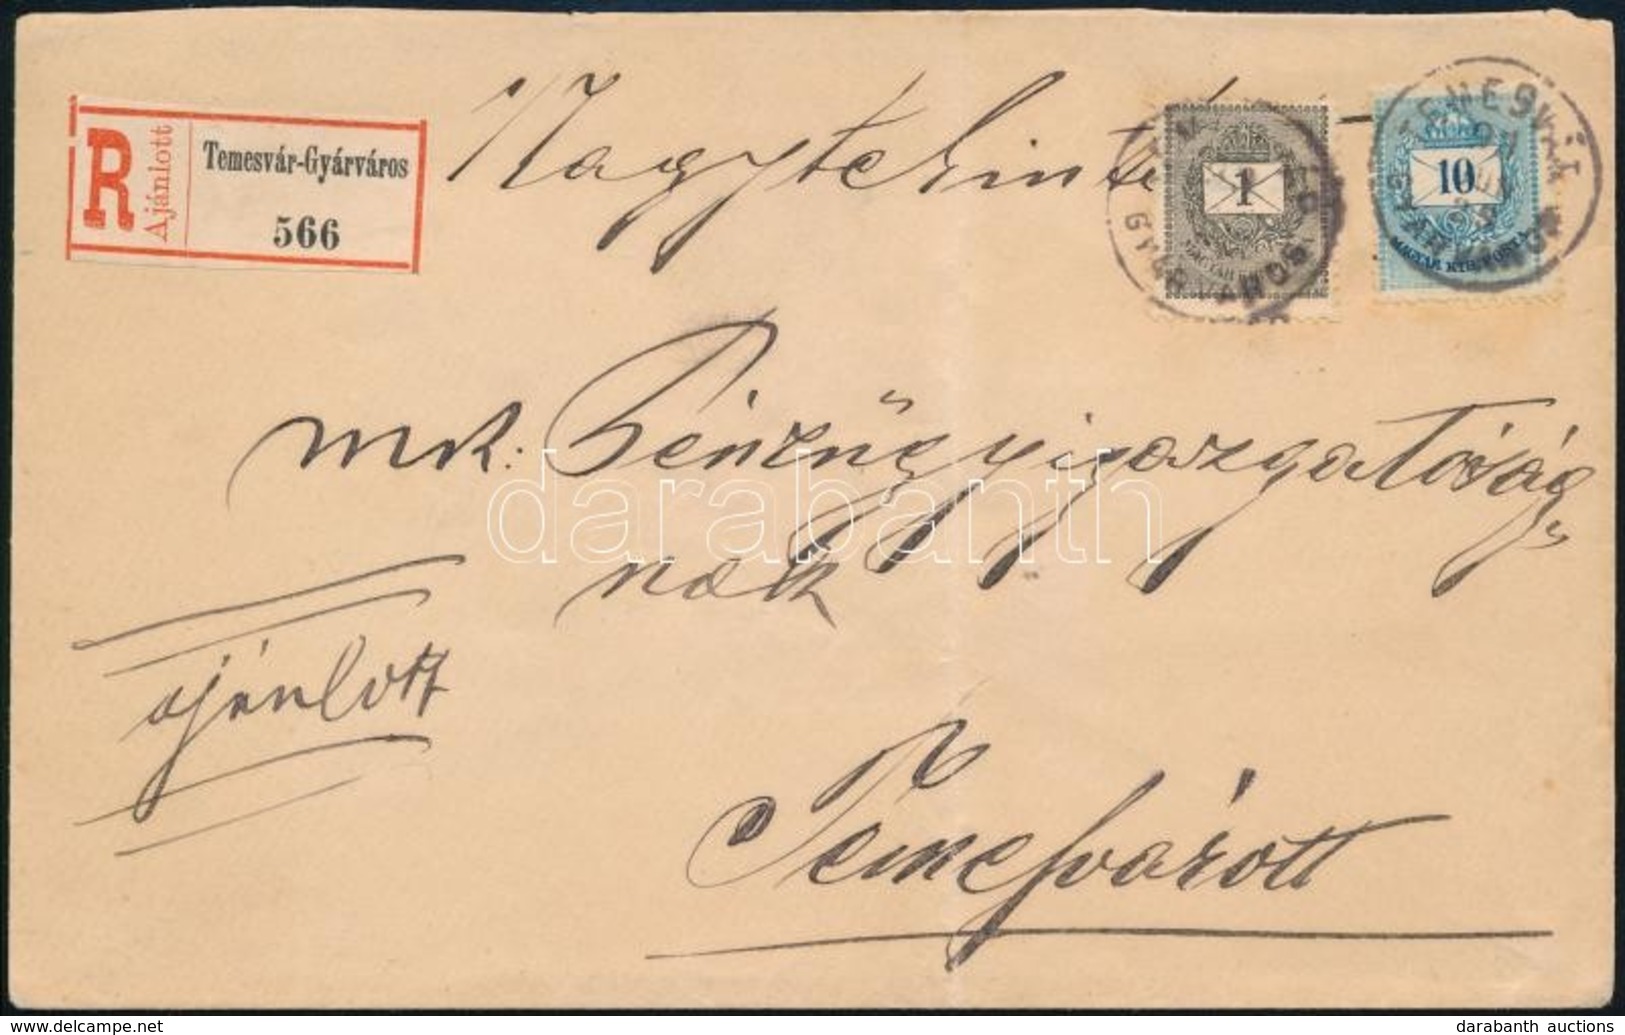 R
Ajánlott
Temesvár-Gyárváros
566
Nagytekinte
1
MAGYAR KIR.
10
MAGYAR KIR. POSTA
TEMESVÁR
GYÁRVÁROS
mk. Pénzügyigazgatóság„
nak
ajánlott
Temesvárott
darabanth
www.delcampe.net
darabanth auctions